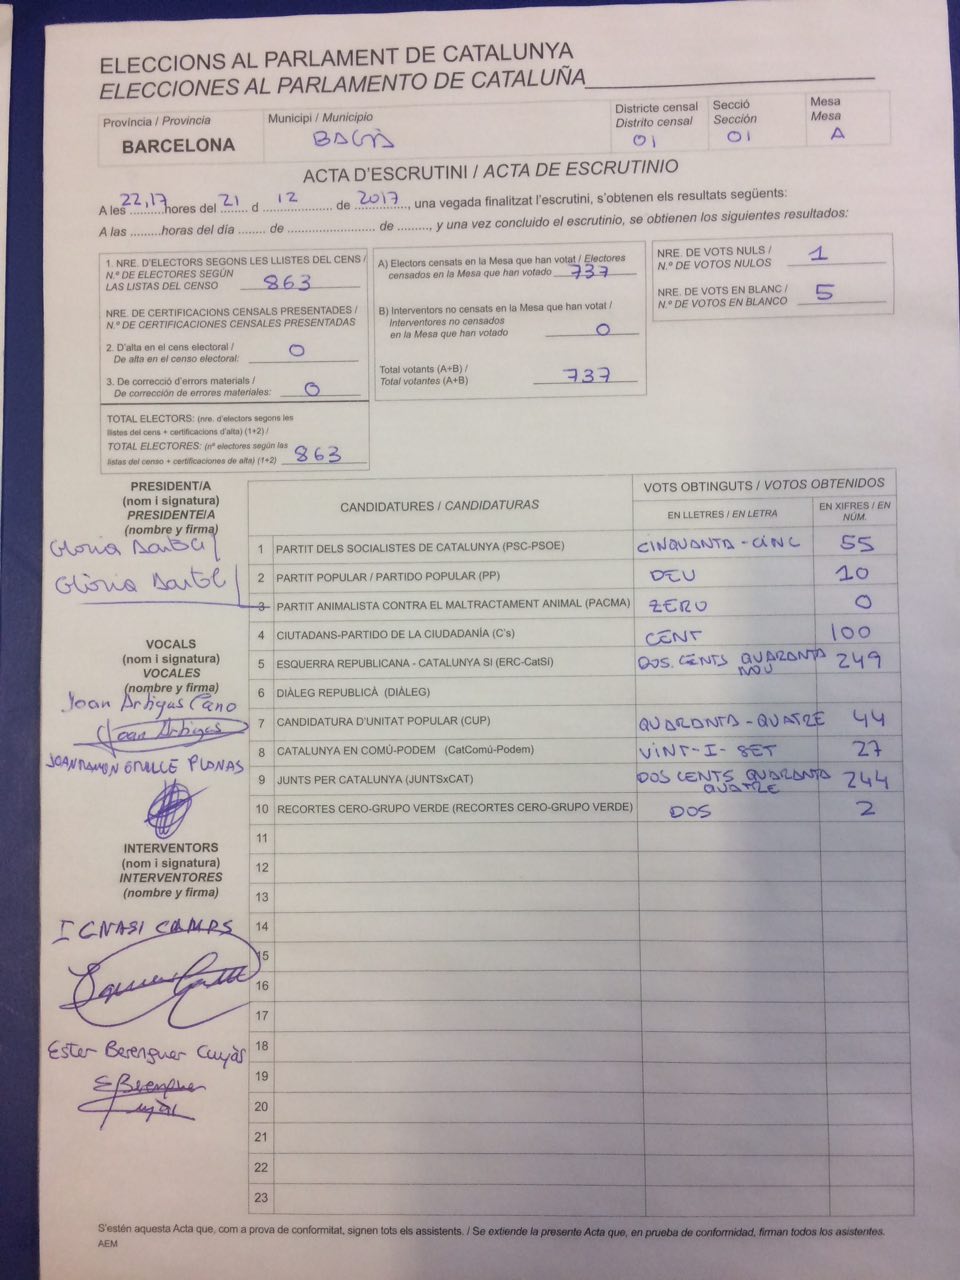 ELECCIONS AL PARLAMENT DE CATALUNYA
ELECCIONES AL PARLAMENTO DE CATALUÑA
Província / Provincia
BARCELONA
Municipi / Municipio
BAGÀ
Districte censal
Distrito censal
01
Secció
Sección
01
Mesa
Mesa
A
ACTA D'ESCRUTINI / ACTA DE ESCRUTINIO
A les 22,17 hores del 21 d 12 de 2017, una vegada finalitzat l'escrutini, s'obtenen els resultats següents:
A las ......... horas del día ........ de ...................... de ........., y una vez concluido el escrutinio, se obtienen los siguientes resultados:
1. NRE. D'ELECTORS SEGONS LES LLISTES DEL CENS /
N.º DE ELECTORES SEGÚN
LAS LISTAS DEL CENSO 863
NRE. DE CERTIFICACIONS CENSALS PRESENTADES /
N.º DE CERTIFICACIONES CENSALES PRESENTADAS
2. D'alta en el cens electoral /
De alta en el censo electoral: 0
3. De correcció d'errors materials /
De corrección de errores materiales: 0
TOTAL ELECTORS: (nre. d'electors segons les
llistes del cens + certificacions d'alta) (1+2) /
TOTAL ELECTORES: (nº electores según las
listas del censo + certificaciones de alta) (1+2) 863
A) Electors censats en la Mesa que han votat / Electores
censados en la Mesa que han votado 737
B) Interventors no censats en la Mesa que han votat /
Interventores no censados
en la Mesa que han votado 0
Total votants (A+B) /
Total votantes (A+B) 737
NRE. DE VOTS NULS /
N.º DE VOTOS NULOS 1
NRE. DE VOTS EN BLANC /
N.º DE VOTOS EN BLANCO 5
PRESIDENT/A
(nom i signatura)
PRESIDENTE/A
(nombre y firma)
VOCALS
(nom i signatura)
VOCALES
(nombre y firma)
Joan Artigas Cano
Joan Artigas
INTERVENTORS
(nom i signatura)
INTERVENTORES
(nombre y firma)
IGNASI CAMPS
Ester Berenguer Cuyàs
CANDIDATURES / CANDIDATURAS
VOTS OBTINGUTS / VOTOS OBTENIDOS
EN LLETRES / EN LETRA
EN XIFRES / EN
NÚM.
1 PARTIT DELS SOCIALISTES DE CATALUNYA (PSC-PSOE) CINQUANTA-CINC 55
2 PARTIT POPULAR / PARTIDO POPULAR (PP) DEU 10
3 PARTIT ANIMALISTA CONTRA EL MALTRACTAMENT ANIMAL (PACMA) ZERO 0
4 CIUTADANS-PARTIDO DE LA CIUDADANÍA (C's) CENT 100
5 ESQUERRA REPUBLICANA - CATALUNYA SI (ERC-CatSI) DOS.CENTS QUARANTA 249
NOU
6 DIÀLEG REPUBLICÀ (DIÀLEG)
7 CANDIDATURA D'UNITAT POPULAR (CUP) QUARANTA-QUATRE 44
8 CATALUNYA EN COMÚ-PODEM (CatComú-Podem) VINT-I-SET 27
9 JUNTS PER CATALUNYA (JUNTSxCAT) DOS CENTS QUARANTA 244
QUATRE
10 RECORTES CERO-GRUPO VERDE (RECORTES CERO-GRUPO VERDE) DOS 2
11
12
13
14
15
16
17
18
19
20
21
22
23
S'estén aquesta Acta que, com a prova de conformitat, signen tots els assistents. / Se extiende la presente Acta que, en prueba de conformidad, firman todos los asistentes.
AEM